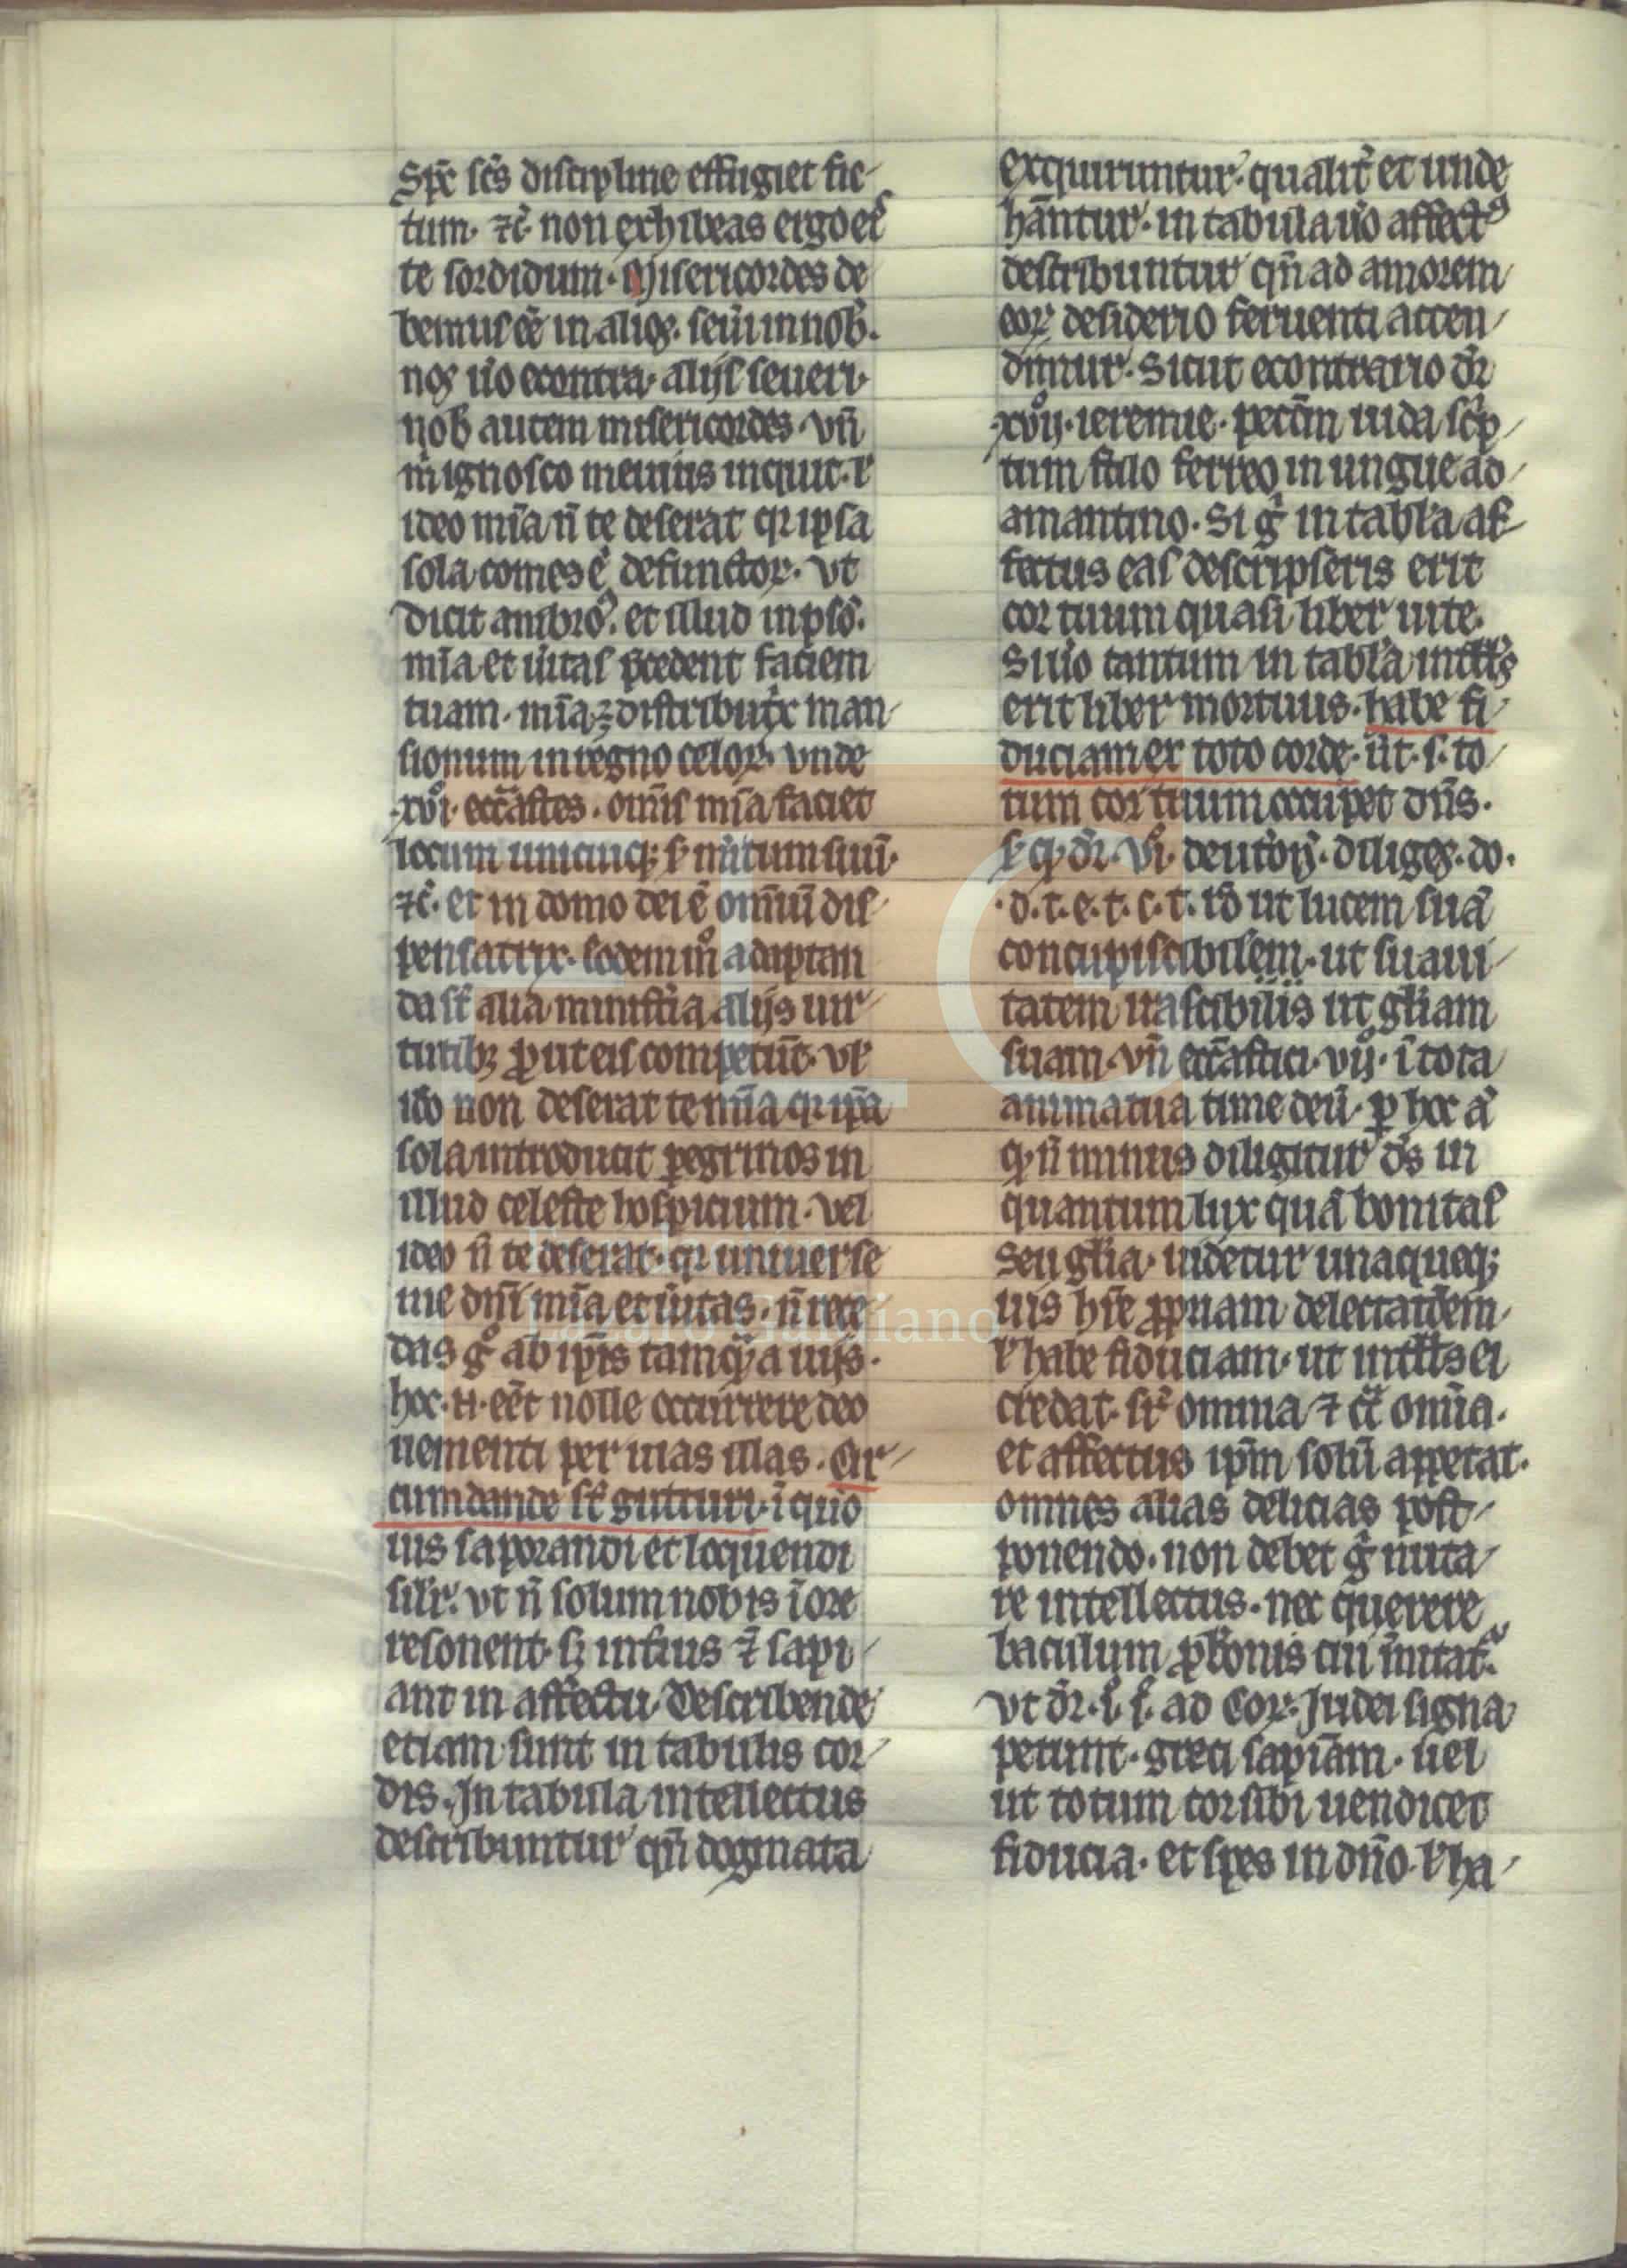 Sp̄c sc̄s discipline effugiet fic
tum. ⁊c̄. non exhibeas ergo ei
te sordidum. Misericordes de
bemus eē in alios. seu̾i in nob̾.
nos u̾o econtra. alijs seueri.
nob̾ autem misericordes. vn̄
m̄ ignosco meuius inquit. ł
ideo mīa n̄ te deserat qr ipsa
sola comes ē defunctoꝝ. vt
dicit ambro⁹. et illud in ps̄o.
mīa et u̾itas p̄cedent faciem
tuam. mīa ē distributͥx man
sionum in regno celoꝝ. vnde
xvi. ecc̄astes. omīs mīa faciet
locum unicuiqꝫ s̾ m̾itum suū.
⁊c̄. et in domo dei ē omnīū dis
pensatrix. eodem m̊ adaptan
da st̄ alia ministr̾ia alijs uir
tutibꝫ ꝓut eis competūt. vł
iđo non deserat te mīa qr ip̄a
sola introducit pegrinos in
illud celeste hospicium. vel
ideo n̄ te deserat. qr uniuerse
uie dnī mīa et u̾itas. n̄ rece
das g̊ ab ip̄is tamqͣ a uijs.
hoc .n. eēt nolle occurrere deo
uenienti per uias illas. Cir
cumdande st̄ gutturi. ī quo
uis saporandi et loquendi
silr̾. vt n̄ solum nobis ī ore
resonent. sꝫ intius ⁊ sapi
ant in affectu. Describende
etiam sunt in tabulis cor
dis. In tabula intellectus
describuntur qn̄ dogmata
exquiruntur. qualit̾ et unde
hāntur. in tabula u̾o affect⁹
describuntur qn̄ ad amorem
eoꝝ desiderio feruenti accen
dimur. Sicut econtrario dr̄
xvij. ieremie. pecc̄m iuda sc̾p
tum stilo ferreo in ungue ad
amantino. Si g̊ in tabl̾a af
fectus eas descripseris erit
cor tuum quasi liber uite.
Si u̾o tantum in tabl̾a intll̾s
erit liber mortuus. habe fi
duciam ex toto corde. ut .s. to
tum cor tuum occupet dn̄s.
s̾ qͦ dr̄. vi. deut̾on̄. diliges. do.
.d. t. e. t. c. t. iđo ut lucem suā
concupiscibilem. ut suaui
tatem irascibilis ut gl̾iam
suam. vn̄ ecc̄astici. vij. ī tota
anima tua time deū. ꝑ hoc ā
qͦ n̄ minus diligitur ds̄ in
quantum lux quā bonitas
seu gl̾ia. uidetur unaqueqꝫ
uis hr̄e ꝓpriam delectatōem.
ł habe fiduciam. ut intll̾s ei
credat. sr̾ omnia ⁊ cͣ omīa.
et affectus ip̄m solū appetat.
omnes alias delicias post
ponendo. non debet g̊ nuta
re intellectus. nec querere
baculum ꝓbonis cui īnitat̾.
vt dr̄. i. ł. ad Coꝝ. Judei signa
petunt. greci sapiām. uel
ut totum cor sibi uendicet
fiducia. et spes in dn̄o. ł ha
FLG
Fundación
Lázaro Galdiano